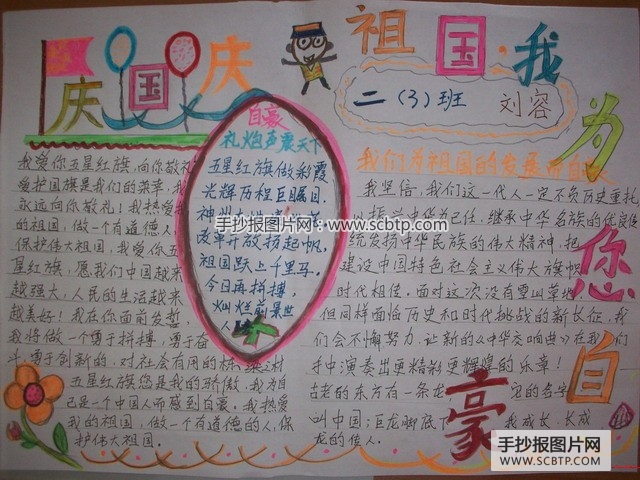 庆国庆
祖国·我为您自豪
二(3)班 刘容
我爱你五星红旗,向你敬礼
爱护国旗是我们的荣幸,我
永远向你敬礼!我热爱我
的祖国,做一个有道德人
保护伟大祖国,我爱你五
星红旗,愿我们中国越来
越强大,人民的生活越来
越美好!我在你面前发誓,
我将做一个勇于拼搏,勇于奋
斗,勇于创新的,对社会有用的栋梁之材
五星红旗您是我的骄傲,我为自
己是一个中国人而感到自豪。我热爱
我的祖国,做一个有道德的人,保
护伟大祖国。
自豪
礼炮声震天下
五星红旗做彩霞
光辉历程巨瞩目,
神州
改革开放扬起帆,
祖国跃上千里马。
今日再拼搏,
灿烂前景世
我们为祖国的发展而自
我坚信,我们这一代人一定不负历史重托
以振兴中华为己任,继承中华名族的优良传
统发扬中华民族的伟大精神,把
建设中国特色社会主义伟大旗帜
时代相传,面对这次没有雪山草地,
但同样面临历史和时代挑战的新长征,我
们会不懈努力,让新的《中华交响曲》在我们
手中演奏出更精彩更辉煌的乐章!
古老的东方有一条龙 的名字
叫中国;巨龙脚底下 我成长,长成
龙的传人。
手抄报图片网
www.scbtp.com
手抄报图片网
WWW.SCBTP.COM